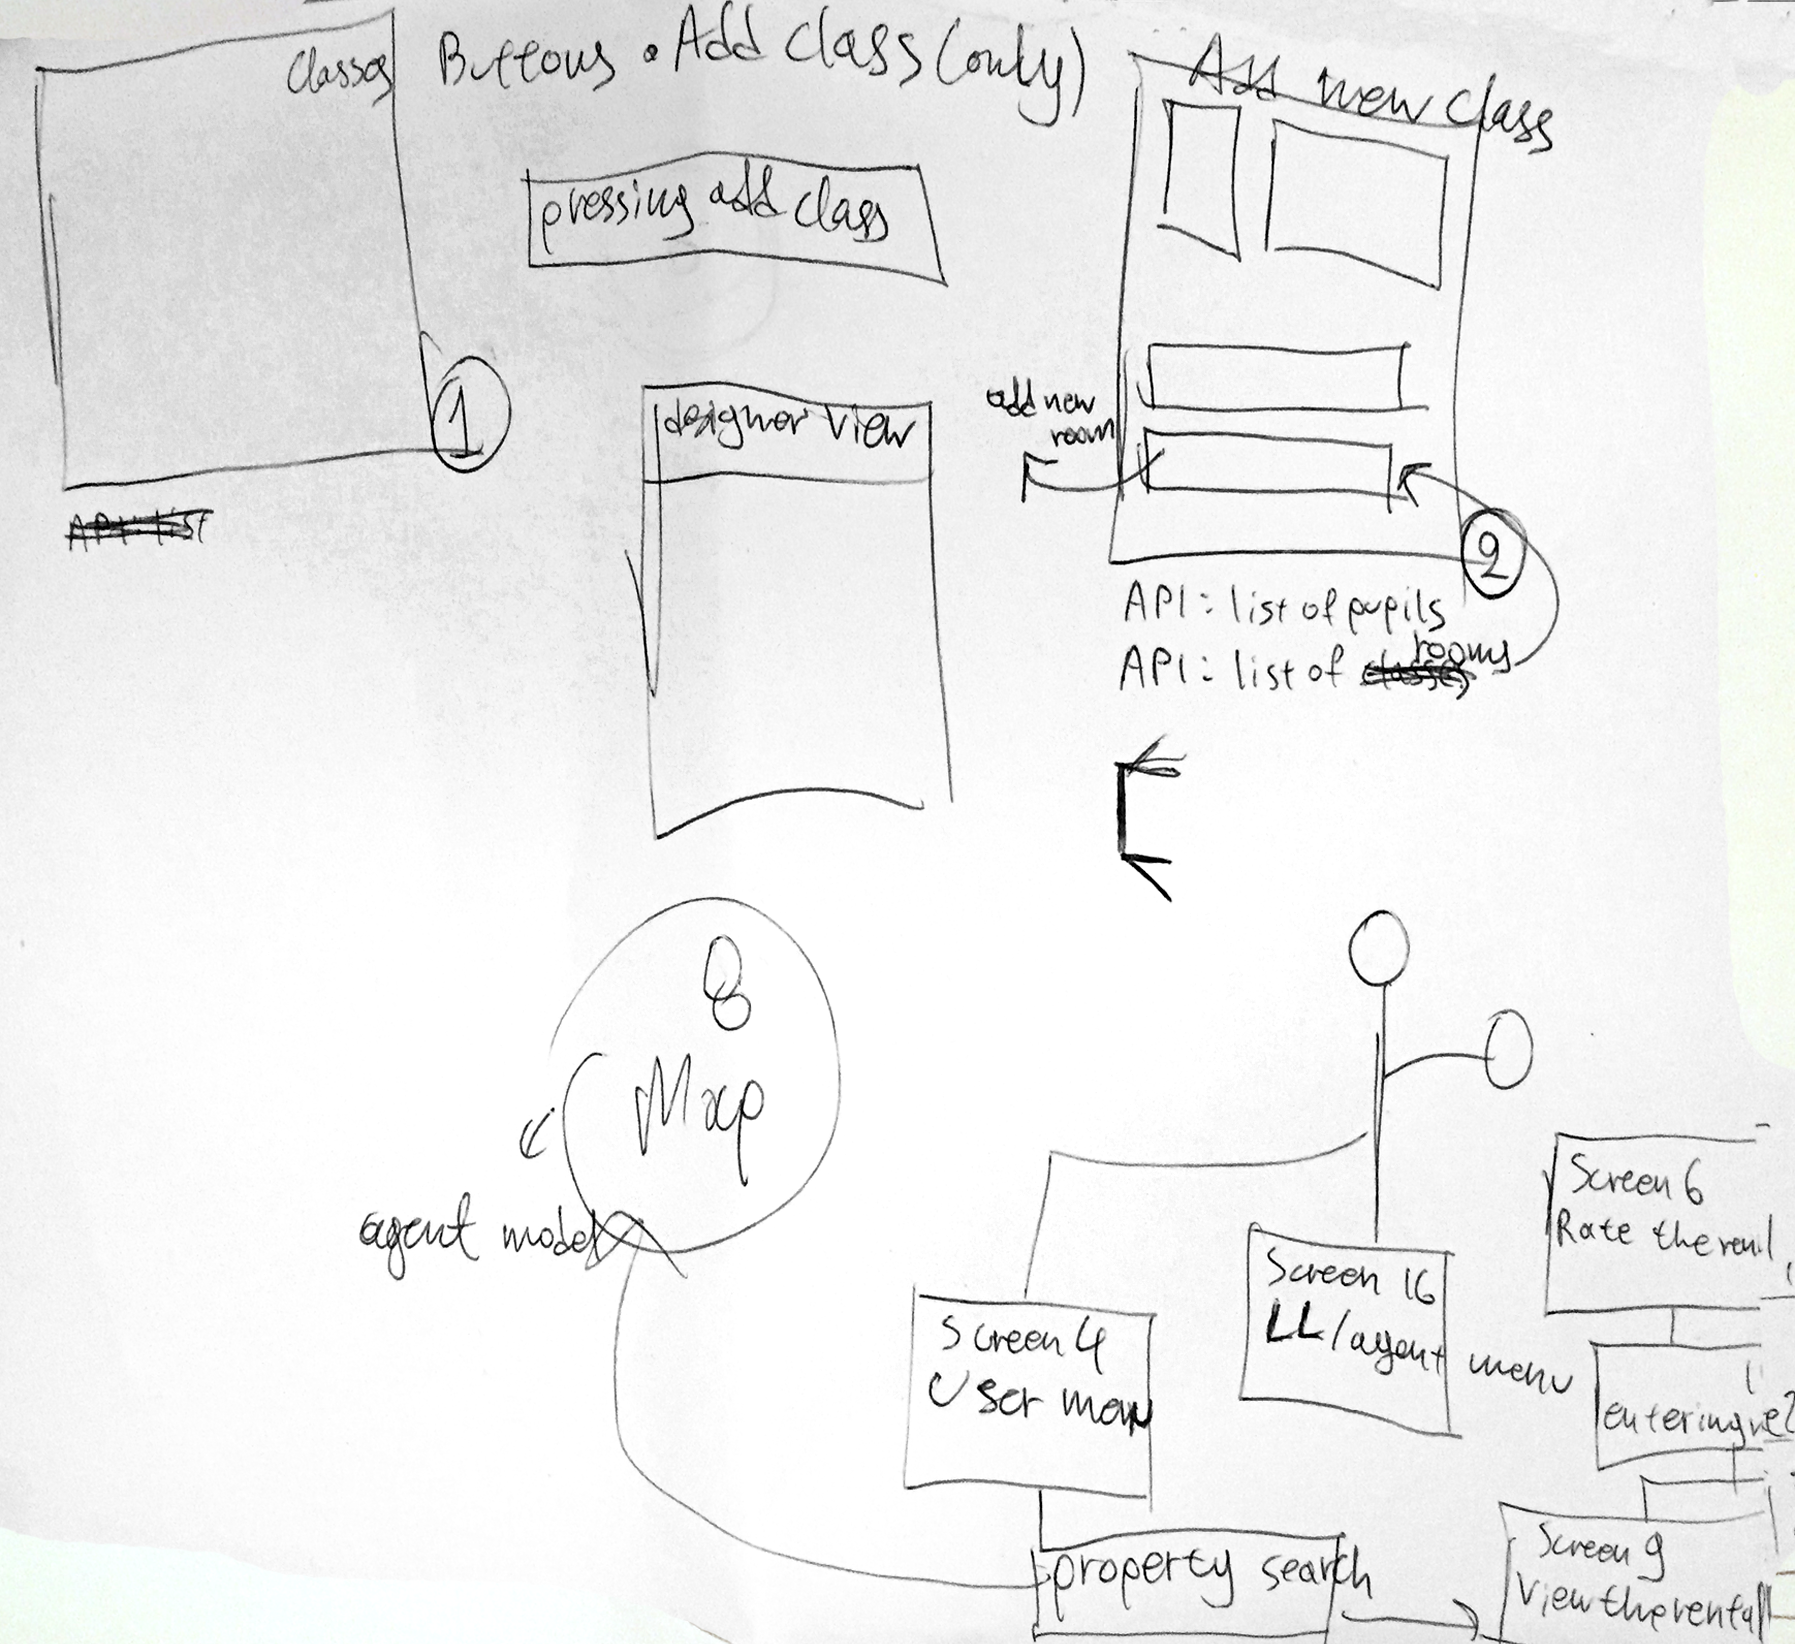 Classes
Buttons • Add class (only)
Add new class
pressing add class
1
designer view
add new
room
2
API: list of pupils
API: list of rooms
8
Map
agent model
Screen 6
Rate the
Screen 16
LL/agent menu
Screen 4
User menu
entering
Screen 9
View the rental
property search